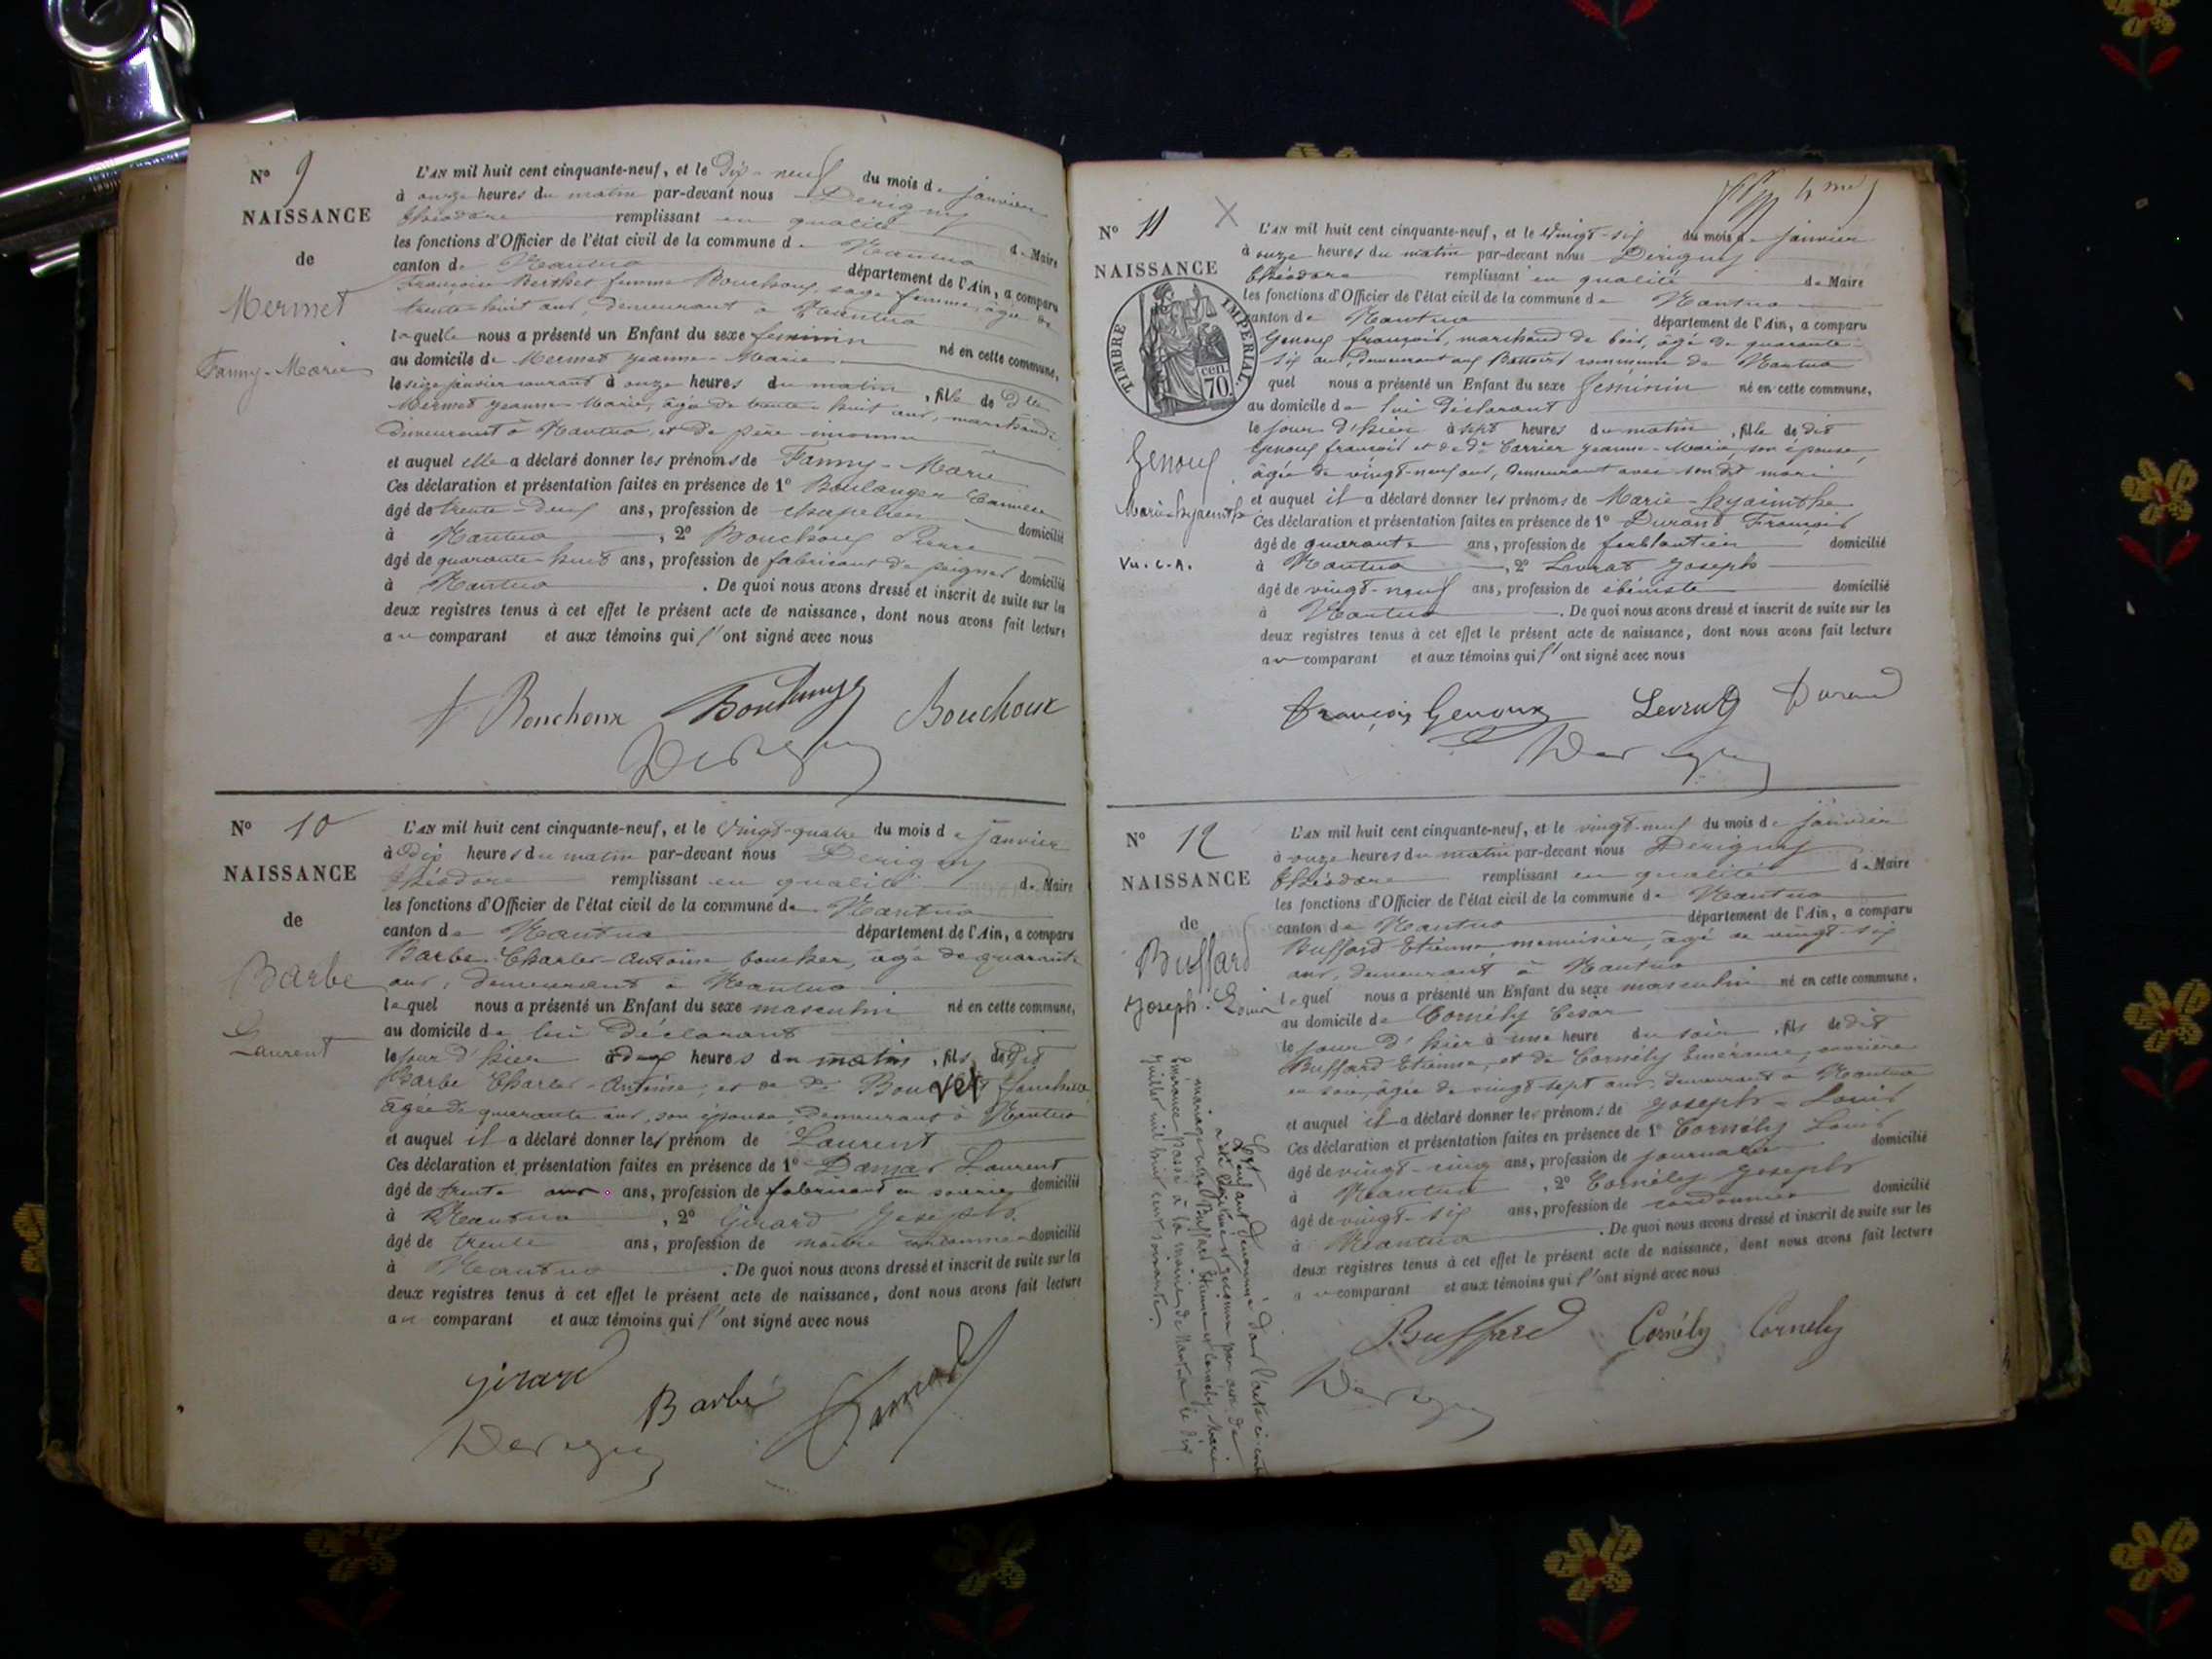 N° 9
NAISSANCE
de
Mermet
Fanny-Marie
L'AN mil huit cent cinquante-neuf, et le Dix-neuf du mois de janvier
à onze heures du matin par-devant nous Derigny
théodore remplissant en qualité de Maire
les fonctions d'Officier de l'état civil de la commune de Nantua
canton de Nantua département de l'Ain, a comparu
Françoise Berthet femme Bouchoux, sage femme, âgée de
trente-huit ans, demeurant à Nantua
laquelle nous a présenté un Enfant du sexe feminin né en cette commune,
au domicile de Mermet jeanne-Marie
le seize janvier courant à onze heures du matin, fille de Dlle
Mermet jeanne-Marie, âgée de trente-huit ans, marchande
demeurant à Nantua, et de père inconnu
et auquel elle a déclaré donner les prénoms de Fanny-Marie
Ces déclaration et présentation faites en présence de 1° Boulanger
âgé de trente-deux ans, profession de chapelier domicilié
à Nantua, 2° Bouchoux Pierre
âgé de quarante-huit ans, profession de fabricant de peignes domicilié
à Nantua. De quoi nous avons dressé et inscrit de suite sur les
deux registres tenus à cet effet le présent acte de naissance, dont nous avons fait lecture
au comparant et aux témoins qui l'ont signé avec nous
f Bouchoux Boulanger Bouchoux
Derigny
N° 10
NAISSANCE
de
Barbe
Laurent
L'AN mil huit cent cinquante-neuf, et le vingt-quatre du mois de janvier
à Dix heures du matin par-devant nous Derigny
théodore remplissant en qualité de Maire
les fonctions d'Officier de l'état civil de la commune de Nantua
canton de Nantua département de l'Ain, a comparu
Barbe Charles-Antoine boucher, âgé de quarante
ans, demeurant à Nantua
lequel nous a présenté un Enfant du sexe masculin né en cette commune,
au domicile de lui déclarant
le jour d'hier à deux heures du matin, fils de dit
Barbe Charles-Antoine, et de de Bouvet
âgée de quarante ans, son épouse, demeurant à Nantua
et auquel il a déclaré donner les prénom de Laurent
Ces déclaration et présentation faites en présence de 1° Damas Laurent
âgé de trente ans ans, profession de fabricant en soierie domicilié
à Nantua, 2° Girard Joseph
âgé de trente ans, profession de maître cordonnier domicilié
à Nantua. De quoi nous avons dressé et inscrit de suite sur les
deux registres tenus à cet effet le présent acte de naissance, dont nous avons fait lecture
au comparant et aux témoins qui l'ont signé avec nous
Girard Barbe Damas
Derigny
N° 11
NAISSANCE
TIMBRE IMPERIAL
70 cen.
Genoux
Marie-hyacinthe
Vu. C. A.
L'AN mil huit cent cinquante-neuf, et le vingt-six du mois de janvier
à onze heures du matin par-devant nous Derigny
théodore remplissant en qualité de Maire
les fonctions d'Officier de l'état civil de la commune de Nantua
canton de Nantua département de l'Ain, a comparu
Genoux françois, marchand de bois, âgé de quarante-
six ans, demeurant aux Battoirs commune de Nantua
quel nous a présenté un Enfant du sexe feminin né en cette commune,
au domicile de lui déclarant
le jour d'hier à sept heures du matin, fille de dit
Genoux françois et de de Carrier jeanne-Marie, son épouse,
âgée de vingt-neuf ans, demeurant avec son dit mari
et auquel il a déclaré donner les prénoms de Marie-hyacinthe
Ces déclaration et présentation faites en présence de 1° Durand François
âgé de quarante ans, profession de ferblantier domicilié
à Nantua, 2° Levrat Joseph
âgé de vingt-neuf ans, profession de ébéniste domicilié
à Nantua. De quoi nous avons dressé et inscrit de suite sur les
deux registres tenus à cet effet le présent acte de naissance, dont nous avons fait lecture
au comparant et aux témoins qui l'ont signé avec nous
François Genoux Levrat Durand
Derigny
N° 12
NAISSANCE
de
Buffard
Joseph-Louis
L'AN mil huit cent cinquante-neuf, et le vingt-neuf du mois de janvier
à onze heures du matin par-devant nous Derigny
théodore remplissant en qualité de Maire
les fonctions d'Officier de l'état civil de la commune de Nantua
canton de Nantua département de l'Ain, a comparu
Buffard Etienne, menuisier, âgé de vingt-six
ans, demeurant à Nantua
lequel nous a présenté un Enfant du sexe masculin né en cette commune,
au domicile de Cornély César
le jour d'hier à une heure du soir, fils de dit
Buffard Etienne, et de Cornély Emérance, ouvrière
en soie, âgée de vingt-sept ans, demeurant à Nantua
et auquel il a déclaré donner les prénoms de Joseph-Louis
Ces déclaration et présentation faites en présence de 1° Cornély Louis
âgé de vingt-cinq ans, profession de journalier domicilié
à Nantua, 2° Cornély Joseph
âgé de vingt-six ans, profession de cordonnier domicilié
à Nantua. De quoi nous avons dressé et inscrit de suite sur les
deux registres tenus à cet effet le présent acte de naissance, dont nous avons fait lecture
au comparant et aux témoins qui l'ont signé avec nous
Buffard Cornély Cornely
Derigny
L'enfant dénommé dans l'acte ci-contre
a été légitimé et reconnu par acte de
mariage entre Buffard Etienne et Cornély Marie
Emérance passé à la mairie de Nantua le dix
juillet mil huit cent soixante.